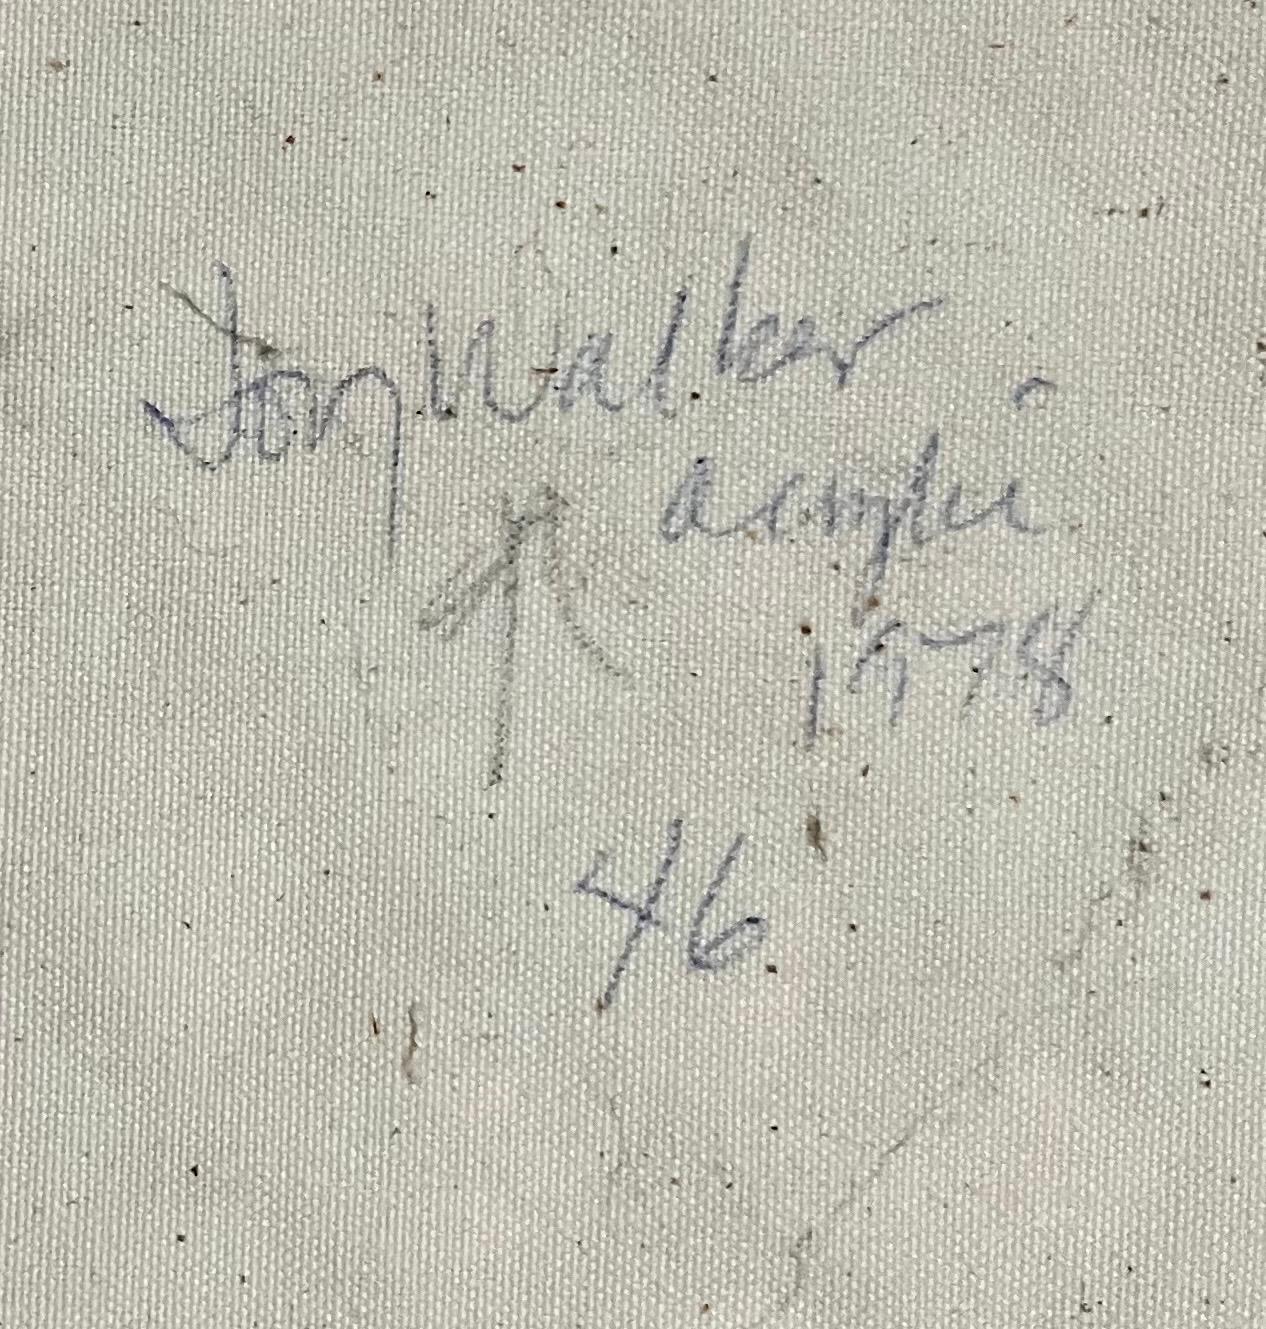 Jon Walker
acrylic
1978
46